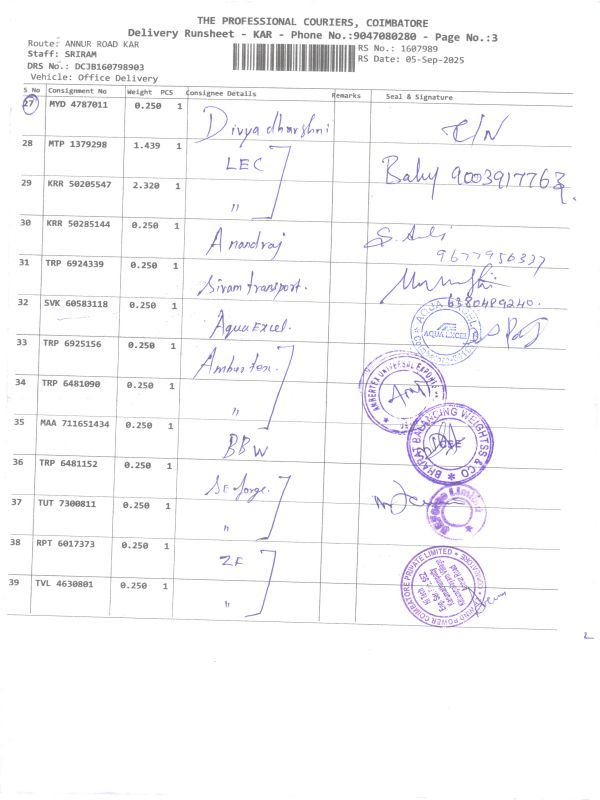 THE PROFESSIONAL COURIERS, COIMBATORE
Delivery Runsheet - KAR - Phone No.:9047080280 - Page No.:3
Route: ANNUR ROAD KAR
RS No.: 1607989
Staff: SRIRAM
RS Date: 05-Sep-2025
DRS No.: DCJB160798903
Vehicle: Office Delivery
S No Consignment No Weight PCS Consignee Details Remarks Seal & Signature
27 MYD 4787011 0.250 1 Divya dharshni C/N
28 MTP 1379298 1.439 1 LEC Baby 9003917763
29 KRR 50205547 2.320 1 "
30 KRR 50285144 0.250 1 Anandraj 9677956337
31 TRP 6924339 0.250 1 Sivam transport. 6380489240.
32 SVK 60583118 0.250 1 Aqua Excel. AQUA EXCEL
33 TRP 6925156 0.250 1
34 TRP 6481090 0.250 1 "
35 MAA 711651434 0.250 1 BBW BHARAT BALANCING WEIGHTSS & CO
36 TRP 6481152 0.250 1 SE forge.
37 TUT 7300811 0.250 1 "
38 RPT 6017373 0.250 1 ZF
39 TVL 4630801 0.250 1 "
2